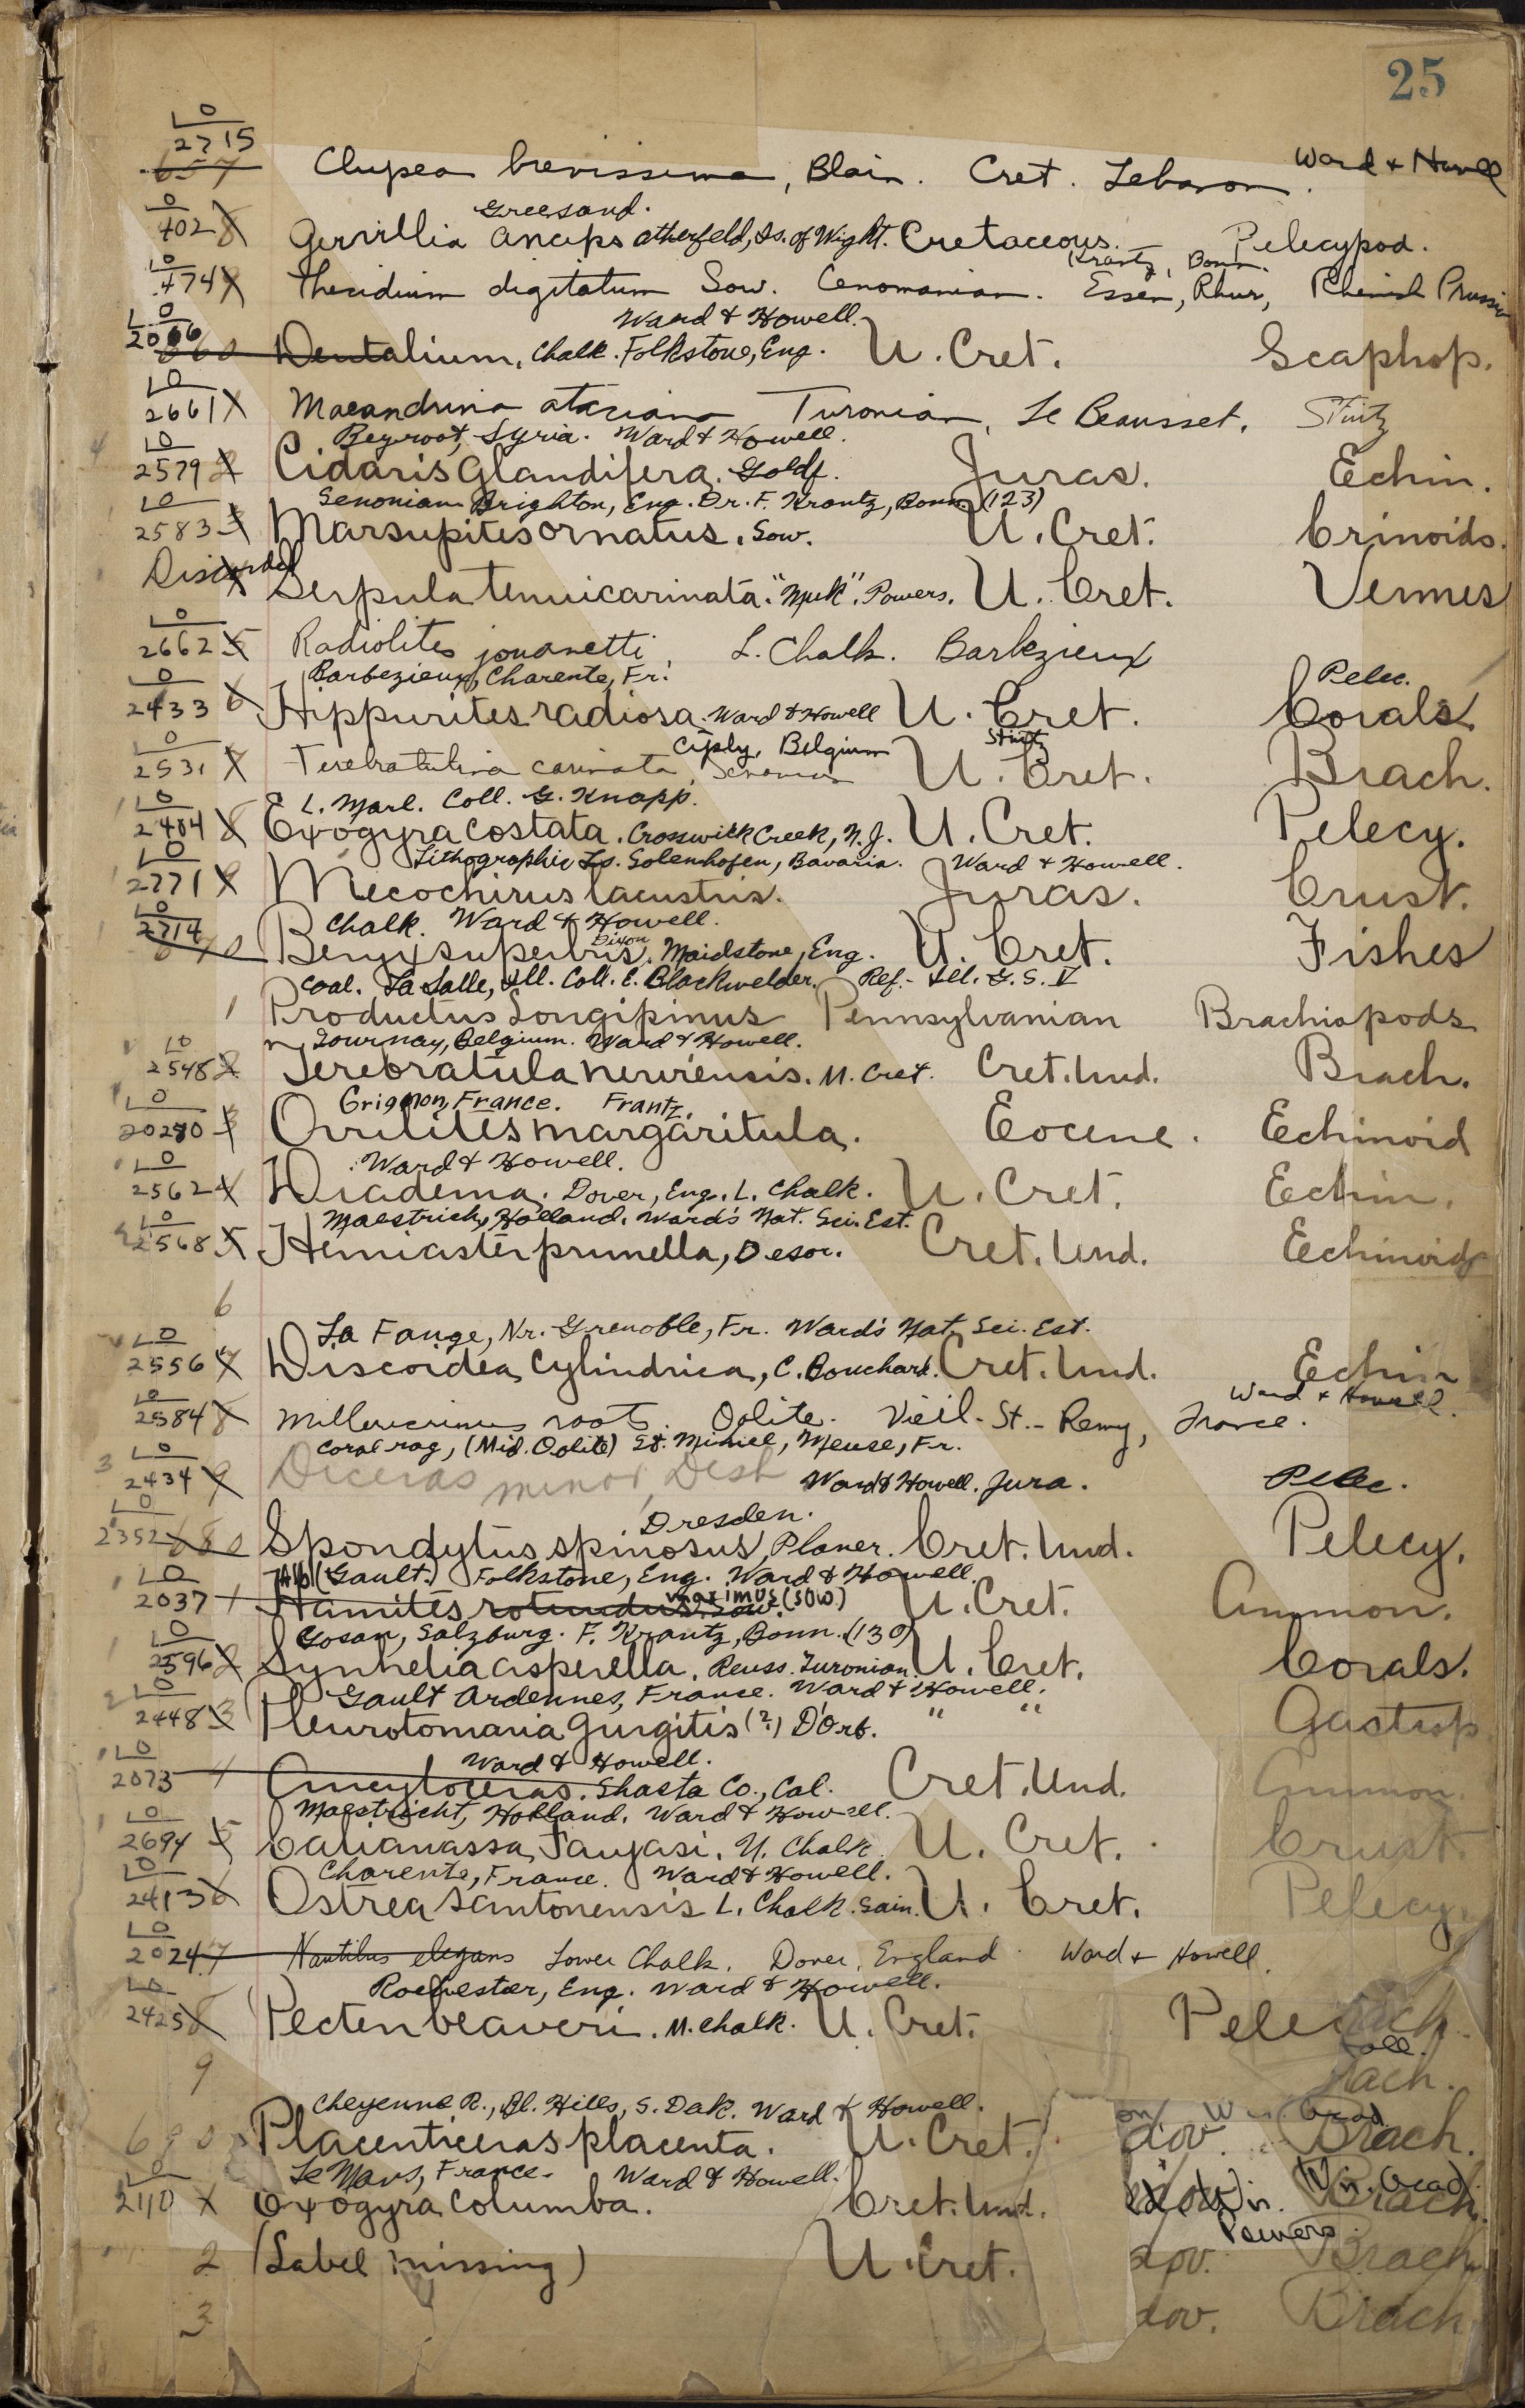 25
LO
2715
657 Clupea brevissima, Blain. Cret. Lebanon. Ward & Howell
LO
402 8 Greesand.
Gervillia anceps Atherfeld, Is. of Wight. Cretaceous. — Pelecypod.
LO
474 Krantz, Bonn.
Thecidium digitatum Sow. Cenomanian. Essen, Rhur, Rhenish Prussia
LO
2066 Ward & Howell.
660 Dentalium, Chalk. Folkstone, Eng. U. Cret. Scaphop.
LO
2661 Maeandrina ataciana Turonian, Le Beausset. Stürtz
LO Beyroot, Syria. Ward & Howell.
2579 Cidaris Glandifera. Goldf. Juras. Echin.
LO Senonian Brighton, Eng. Dr. F. Krantz, Bonn. (123)
2583 3 Marsupites ornatus. Sow. U. Cret. Crinoids.
Discarded Serpula tenuicarinata. "Mek". Powers. U. Cret. Vermes
LO
2662 5 Radiolites jouanetti, L. Chalk. Barbezieux
LO Barbezieux, Charente, Fr. Pelec.
2433 6 Hippurites radiosa. Ward & Howell U. Cret. Corals
LO Ciply, Belgium Stürtz
2531 7 Terebratulina carinata, Senonian U. Cret. Brach.
LO E L. Marl. Coll. G. Knapp.
2404 8 Exogyra costata. Crosswick Creek, N.J. U. Cret. Pelecy.
LO Lithographic Ls. Solenhofen, Bavaria. Ward & Howell.
2771 9 Mecochirus lacustris. Juras. Crust.
LO
2714 Chalk. Ward & Howell.
670 Beryx superbus. Dixon Maidstone, Eng. U. Cret. Fishes
Coal. La Salle, Ill. Coll. E. Blackwelder. Ref.- Ill. G. S. V
1 Productus Longipinus Pennsylvanian Brachiopods
LO Tournay, Belgium. Ward & Howell.
2548 2 Terebratula nerviensis. M. Cret. Cret. Und. Brach.
LO Grignon, France. Frantz.
20280 3 Ovulites margaritula. Eocene. Echinoid
LO Ward & Howell.
2562 4 Diadema. Dover, Eng. L. Chalk. U. Cret. Echin.
LO Maestrich, Holland. Ward's Nat. Sci. Est.
2568 5 Hemiaster prunella, Desor. Cret. Und. Echinoids
6
LO La Fange, Nr. Grenoble, Fr. Ward's Nat. Sci. Est.
2556 7 Discoidea Cylindrica, C. Bouchard. Cret. Und. Echin
LO Ward & Howell.
2584 8 Millericrinus roots. Oolite. Vieil-St.-Remy, France.
LO Coral rag, (Mid. Oolite) St. Mihiel, Meuse, Fr.
2434 9 Diceras minor, Desh Ward & Howell. Jura. Pelec.
LO Dresden.
2352 680 Spondylus spinosus, Planer. Cret. Und. Pelecy.
LO (Gault.) Folkstone, Eng. Ward & Howell.
2037 1 Hamites rotundus. Sow. maximus (Sow.) U. Cret. Ammon.
LO Gosan, Salzburg. F. Krantz, Bonn. (130)
2596 2 Synhelia asperella. Reuss. Turonian. U. Cret. Corals.
LO Gault Ardennes, France. Ward & Howell.
2448 3 Pleurotomaria Gurgitis (?) D'Orb. " " Gastrop
LO Ward & Howell.
2073 4 Ancyloceras. Shasta Co., Cal. Cret. Und. Ammon.
LO Maestricht, Holland. Ward & Howell.
2694 5 Calianassa Faujasi. U. Chalk U. Cret. Crust.
LO Charente, France. Ward & Howell.
2413 6 Ostrea Santonensis L. Chalk. Sain. U. Cret. Pelecy.
LO
2024 7 Nautilus elegans Lower Chalk. Dover, England. Ward & Howell.
LO Rochester, Eng. Ward & Howell.
2425 8 Pecten beaveri. M. Chalk. U. Cret. Pele
9
Cheyenne R., Bl. Hills, S. Dak. Ward & Howell.
690 Placenticeras placenta. U. Cret. dov. Brach.
LO Le Mans, France. Ward & Howell.
2110 Exogyra Columba. Cret. Und. Brach.
Powers.
2 (Label missing) U. Cret. dov. Brach
3 dov. Brach